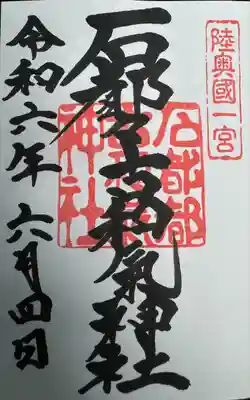 陸奥國一宮
石都々古和氣神社
石都都古和氣神社
令和六年 六月四日